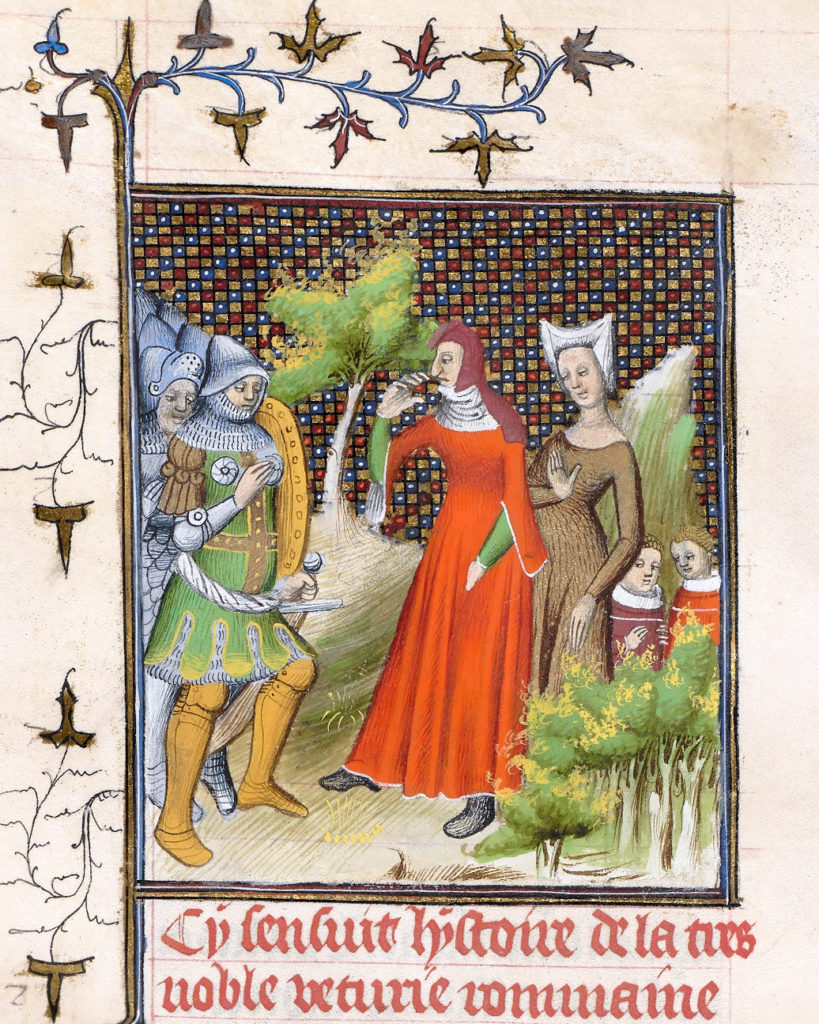 Cÿ sensuit hÿstoire de la tres
noble veturie rommaine
2